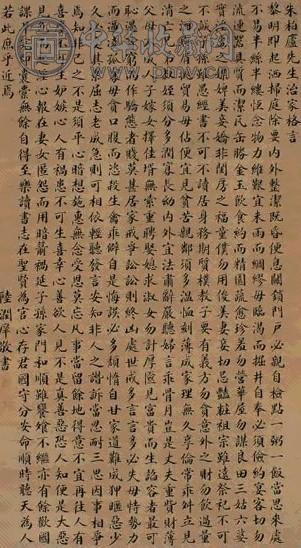 朱柏廬先生治家格言
黎明即起洒掃庭除要內外整潔既昏便息關鎖門戶必親自檢點一粥一飯當思來處
不易半絲半縷恆念物力維艱宜未雨而綢繆毋臨渴而掘井自奉必須儉約宴客切勿
流連器具質而潔瓦缶勝金玉飲食約而精園蔬愈珍羞勿營華屋勿謀良田三姑六婆
實淫盜之媒婢美妾嬌非閨房之福童僕勿用俊美妻妾切忌艷粧祖宗雖遠祭祀不可
不誠子孫雖愚經書不可不讀居身務期質樸教子要有義方勿貪意外之財勿飲過量
之酒與肩挑貿易毋佔便宜見貧苦親鄰須多溫恤刻薄成家理無久享倫常乖舛立見
消亡兄弟叔姪須分多潤寡長幼內外宜法肅辭嚴聽婦言乖骨肉豈是丈夫重貲財薄
父母不成人子嫁女擇佳壻毋索重聘娶媳求淑女勿計厚匳見富貴而生諂容者最可
恥遇貧窮而作驕態者賤莫甚居家戒爭訟訟則終凶處世戒多言言多必失毋恃勢力
而凌逼孤寡毋貪口腹而恣殺生禽乖僻自是悔誤必多頹惰自甘家道難成狎暱惡少
久必受其累屈志老成急則可相依輕聽發言安知非人之譖訴當忍耐三思因事相爭
焉知非己之不是須平心暗想施惠無念受恩莫忘凡事當留餘地得意不宜再往人有
喜慶不可生妬嫉心人有禍患不可生喜幸心善欲人見不是真善惡恐人知便是大惡
見色而起淫心報在妻女匿怨而用暗箭禍延子孫家門和順雖饔飧不繼亦有餘歡國
課早完即囊橐無餘自得至樂讀書志在聖賢為官心存君國守分安命順時聽天為人
若此庶乎近焉
陸潤庠敬書
中华收藏网